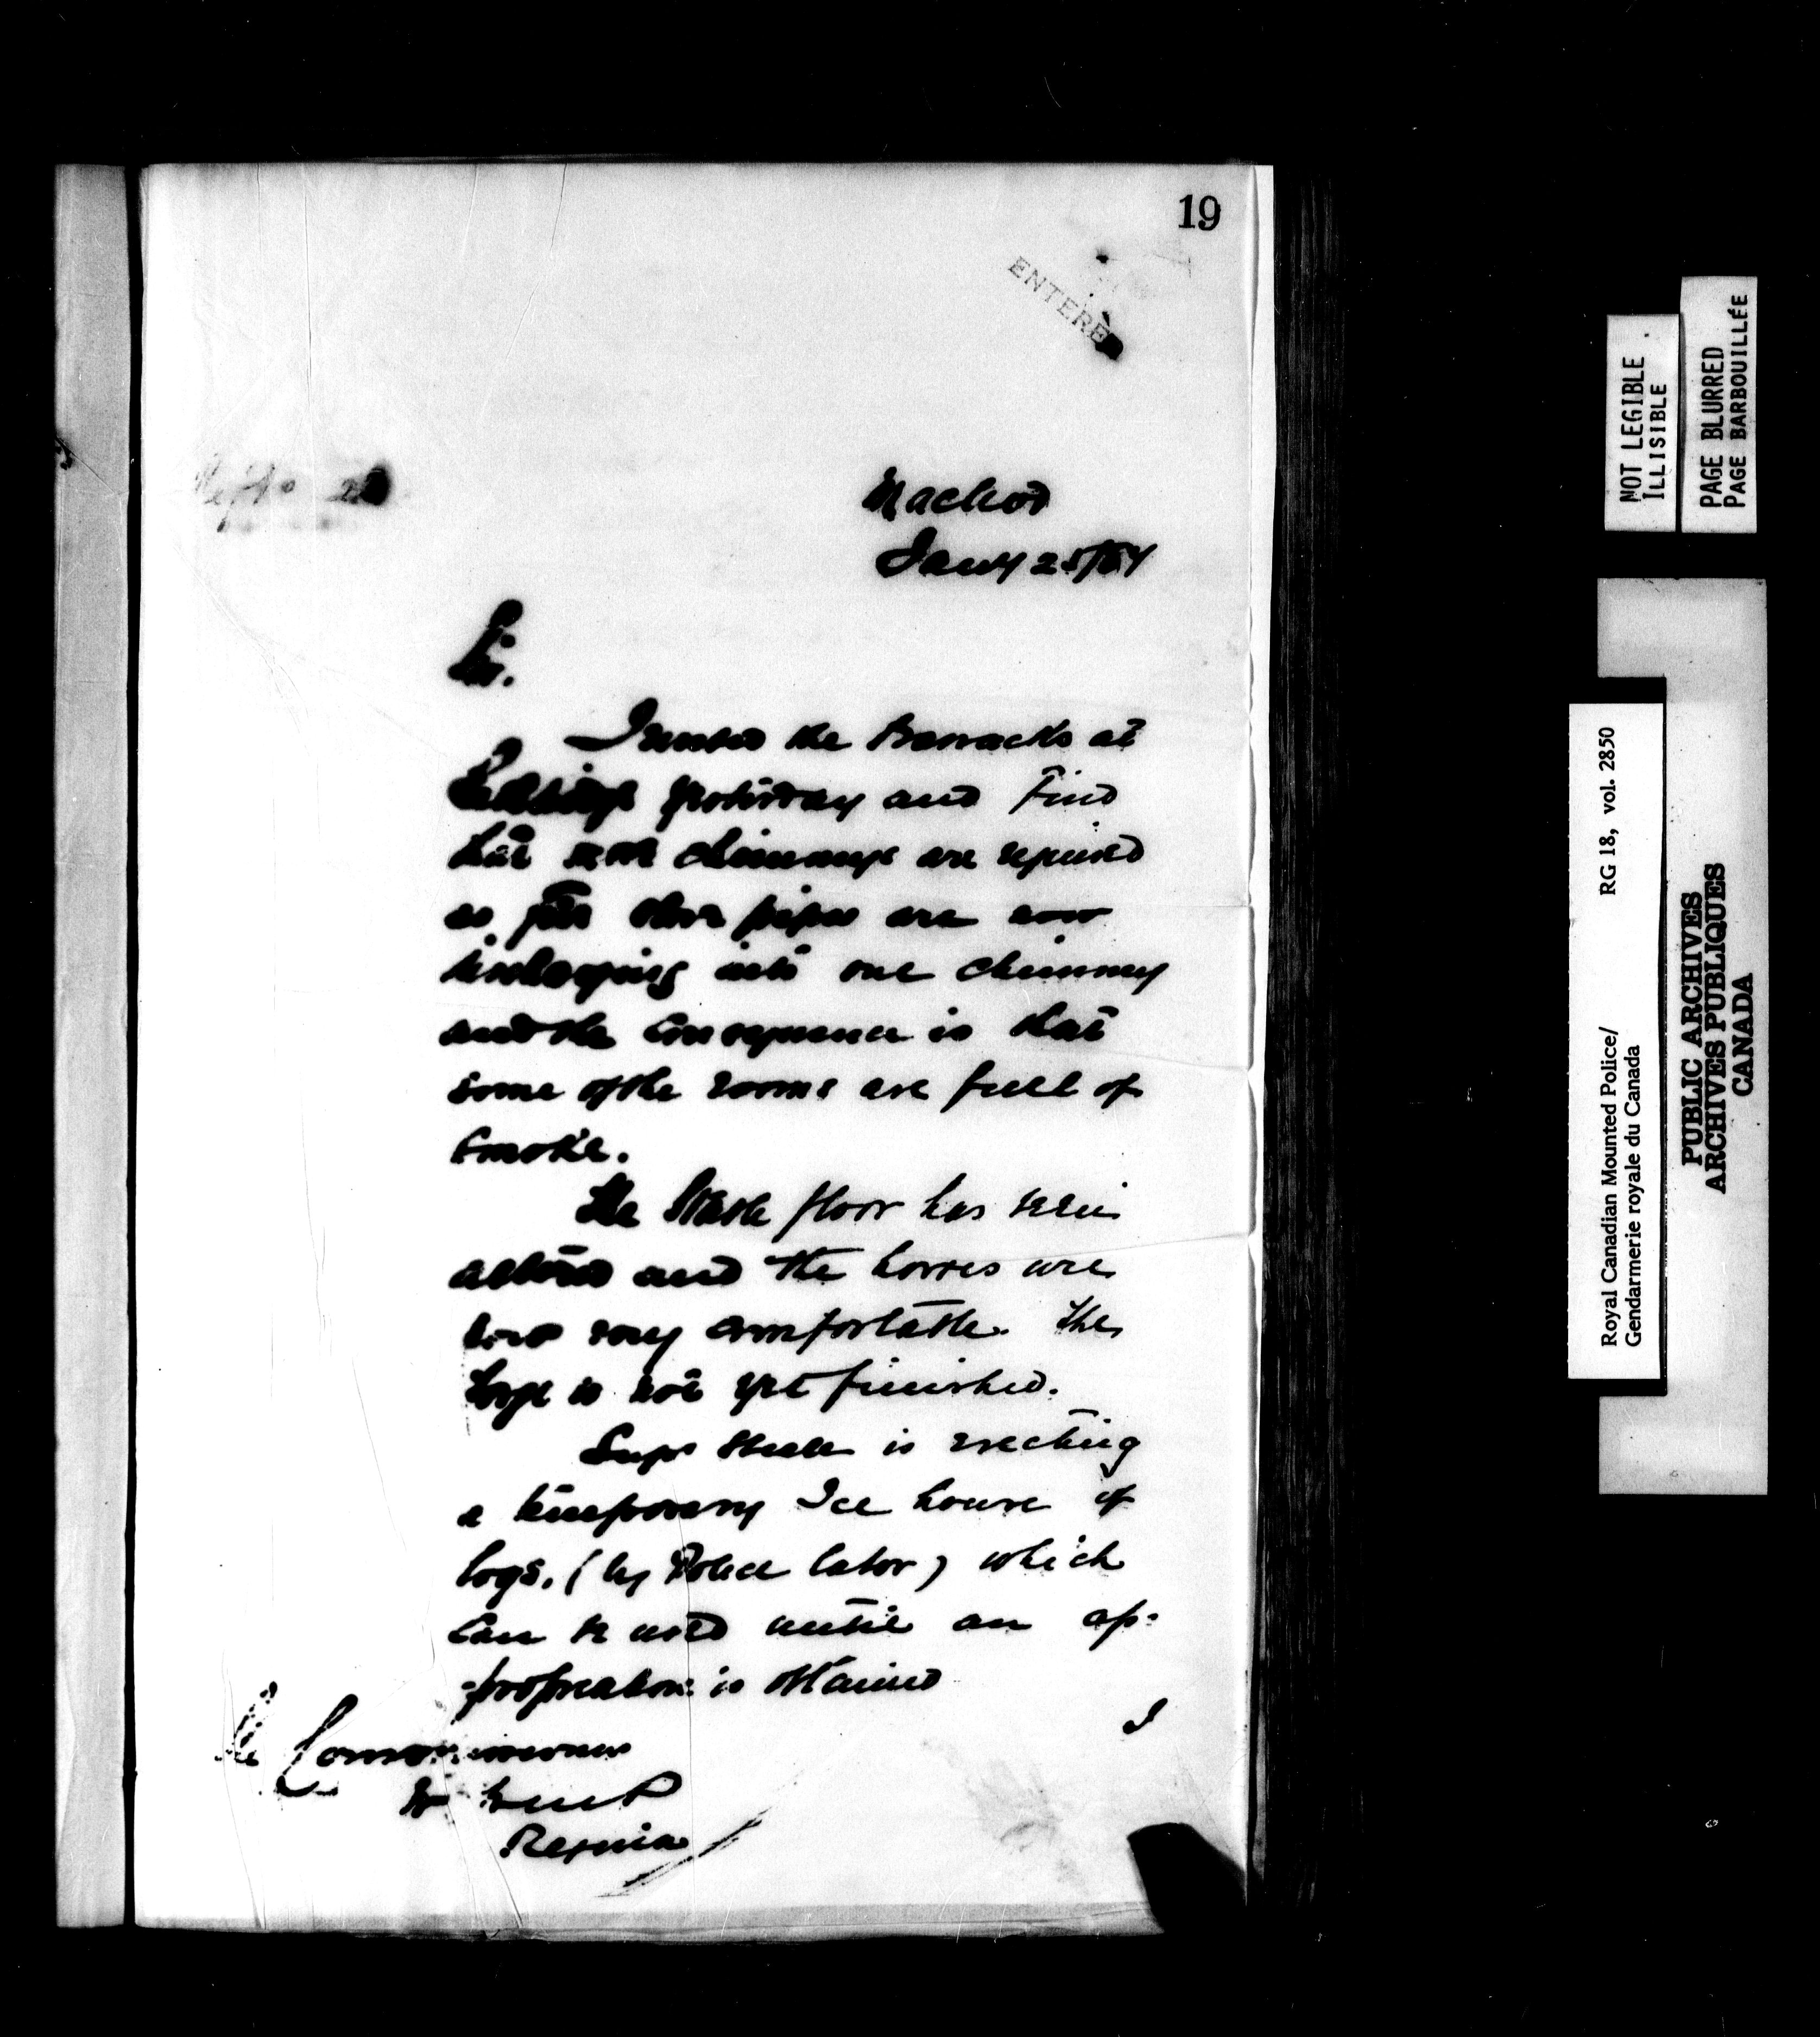 19
ENTERED
Macleod
Jany 25/87
Sir.
I the Barracks at
Lethbridge yesterday and find
that more chimneys are required
as four stove pipes are now
discharging into one chimney
and the consequence is that
some of the rooms are full of
smoke.
The Stable floor has been
altered and the horses are
now very comfortable. The
forge is not yet finished.
Supt Steele is erecting
a temporary Ice house of
logs. (by Police labor) which
can be used until an ap-
-propriation is obtained
I
The Commissioner
Regina
NOT LEGIBLE
ILLISIBLE
PAGE BLURRED
PAGE BARBOUILLÉE
Royal Canadian Mounted Police/ RG 18, vol. 2850
Gendarmerie royale du Canada
PUBLIC ARCHIVES
ARCHIVES PUBLIQUES
CANADA